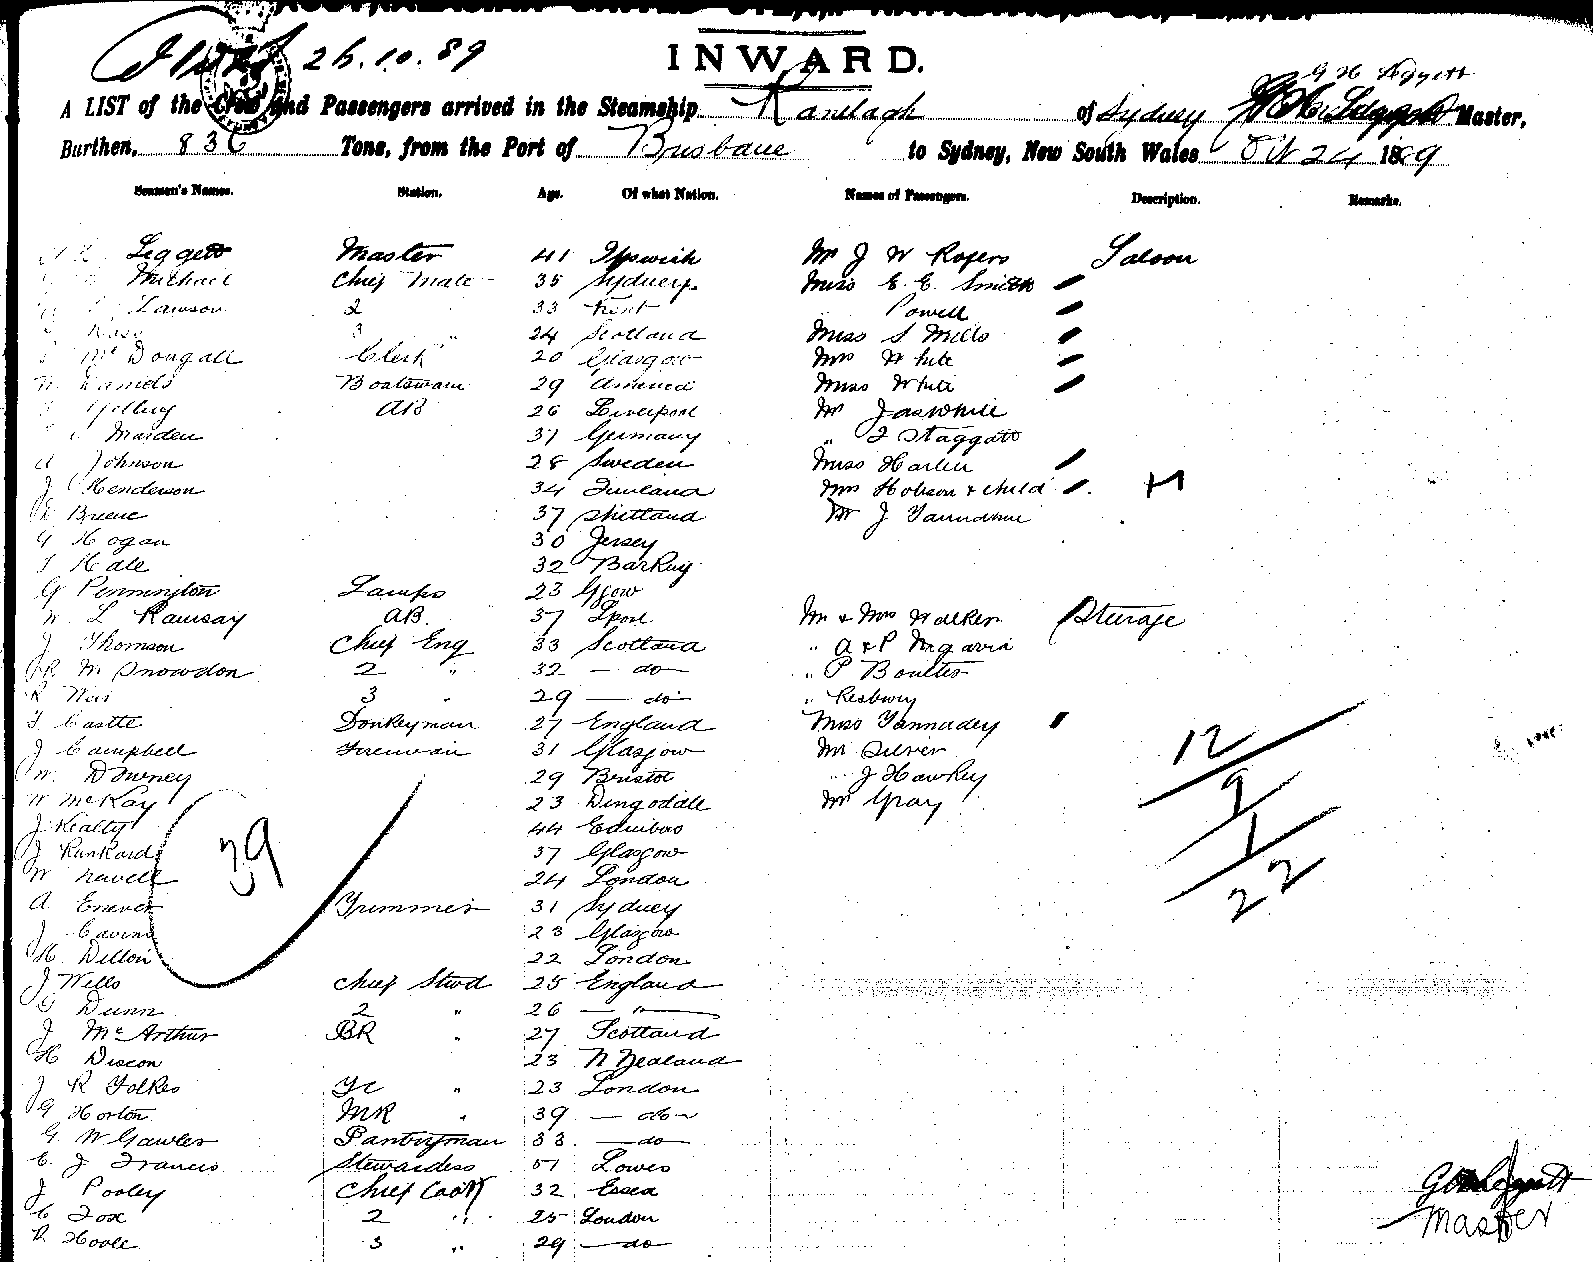 26.10.89
INWARD.
G H Leggett
A LIST of the Crew and Passengers arrived in the Steamship Ranelagh of Sydney Master,
Burthen, 836 Tons, from the Port of Brisbane to Sydney, New South Wales Oct 24 1889
Seamen's Names. Station. Age. Of what Nation. Names of Passengers. Description. Remarks.
Leggett Master 41 Ipswich Mr J W Rogers Saloon
Michael Chief Mate 35 Sydney Miss E. E. Smith
Lawson 2 33 Kent Powell
Rose 3 " 24 Scotland Miss S Mills
McDougall Clerk 20 Glasgow Mrs White
Daniels Boatswain 29 Miss White
AB 26 Liverpool Mr Jas White
Marden 37 Germany " Staggatt
A Johnson 28 Sweden Miss Harlin
J Henderson 34 Finland Mrs Hobson & child
Breene 37 Shetland Mr J
G Hogan 30 Jersey
T Hale 32
G Pennington Lamps 23 Ggow
W. L Ramsay AB. 37 Lpool Mr & Mrs Walker Steerage
J Thomson Chief Eng 33 Scotland " A & P
R M Snowdon 2 " 32 — do — " P Boulter
R Weir 3 " 29 — do — "
T Castle Donkeyman 27 England Miss Tannadey
J Campbell Fireman 31 Glasgow Mr Silver
W. Downey 29 Bristol " J Hawkey
W McKay 23 Dingodale Mr Gray
J Kealty 44 Edinboro
J Rankard 37 Glasgow
W Navell 24 London
A. Trimmer 31 Sydney
J 23 Glasgow
H. Dillon 22 London
J Wells Chief Stwd 25 England
G Dunn 2 " 26 — " —
J McArthur BR " 27 Scotland
H Discon 23 N Zealand
J R Folkes " 23 London
G Horton MR " 39 — do —
G. W Gawler Pantryman 33. — do —
C. J Francis Stewardess 51 Lowes
J Pooley Chief Cook 32 Essex
C Fox 2 " 25 London
Hoole 3 " 29 — do —
39
12
9
1
22
G H Leggett
Master